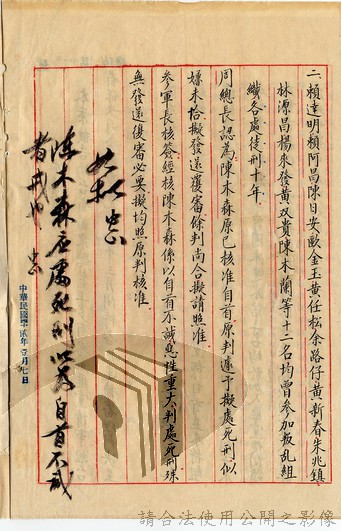 二、賴達明賴阿昌陳日安歐金玉黃任松余路仔黃新春朱兆鎮
林源昌楊來發黃双貴陳木蘭等十二名均曾參加叛乱組
織各處徒刑十年
周總長認為陳木森原已核准自首原判遽予擬處死刑似
嫌未恰擬發還覆審餘判尚合擬請照准
參軍長核簽經核陳木森係以自首不誠惡性重大判處死刑殊
無發還復審必要擬均照原判核准
陳木森應屬死刑以為自首不誠
者戒
中華民國肆貳年壹月七日
請合法使用公開之影像